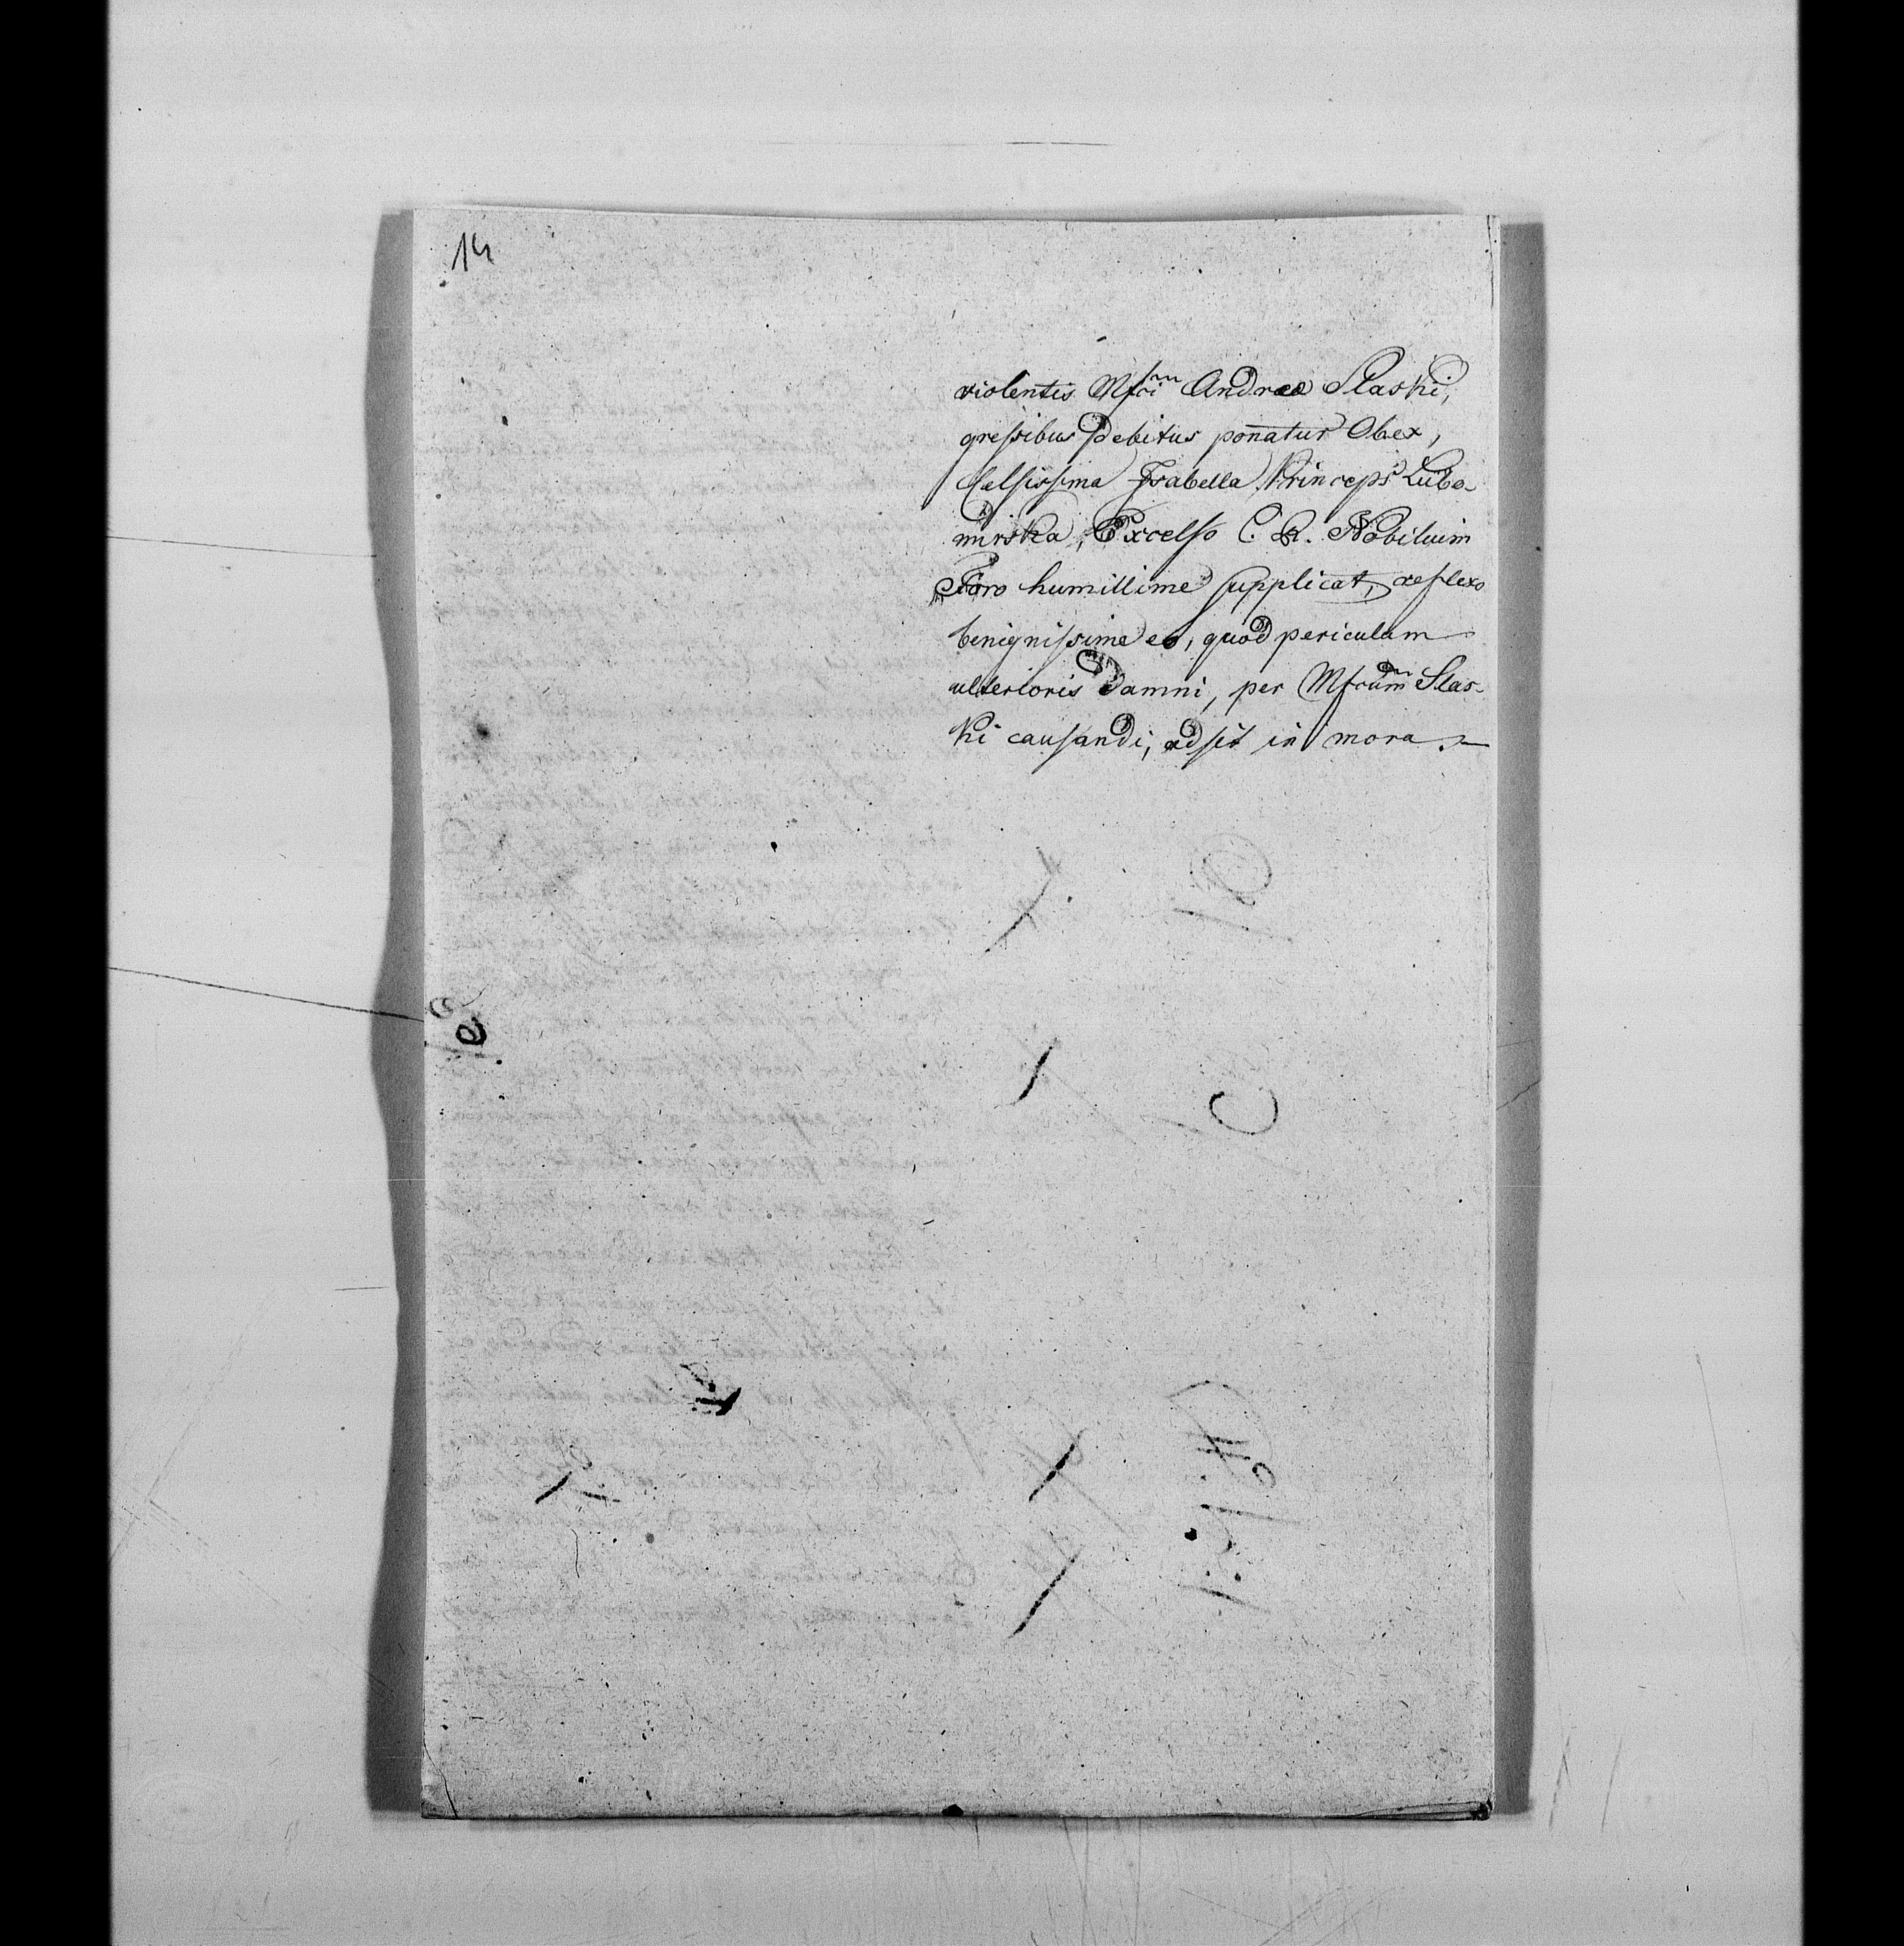 14
violentis Mfci Andreæ Slaski,
gressibus debitus ponatur Obex,
Celsissima Isabella Princeps Lubo-
mirska, Excelso C. R. Nobilium
Foro humillime supplicat, reflexo
benignissime eo, quod periculum
ulterioris damni, per Mfcum Slas-
ki causandi, adsit in mora.